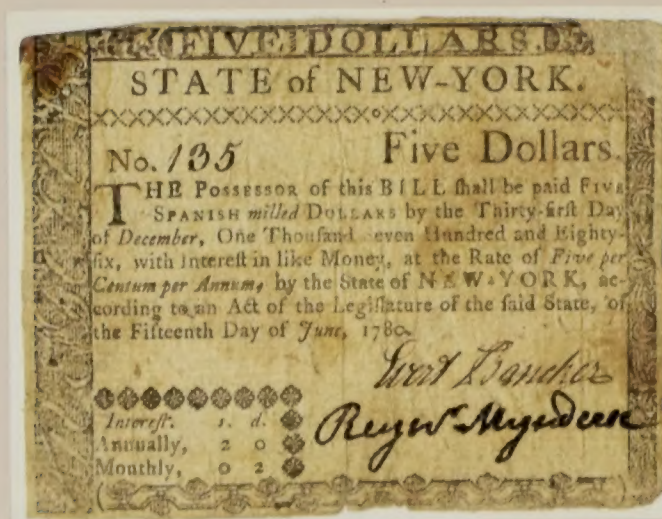 FIVE DOLLARS.
STATE of NEW-YORK.
No. 135 Five Dollars.
THE POSSESSOR of this BILL ſhall be paid FIVE
SPANISH milled DOLLARS by the Thirty-firſt Day
of December, One Thouſand even Hundred and Eighty-
ſix, with Intereſt in like Money, at the Rate of Five per
Centum per Annum, by the State of NEW-YORK, ac-
cording to an Act of the Legiſlature of the ſaid State, of
the Fifteenth Day of June, 1780.
Evert Bancker
Reyr. Mynderse
Intereſt. s. d.
Annually, 2 0
Monthly, 0 2